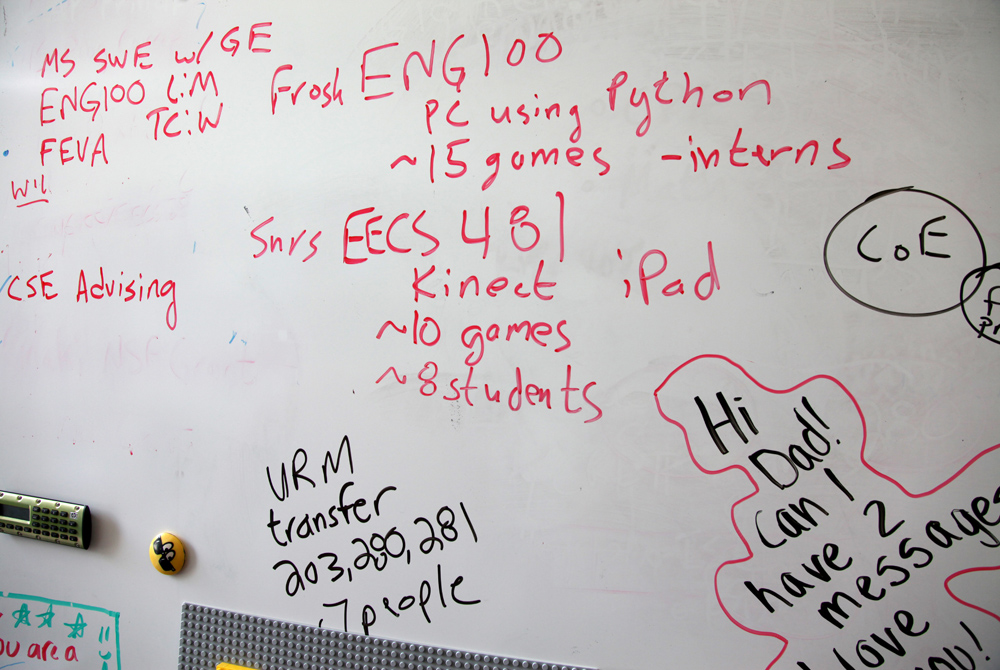 MS SWE w/ GE
ENG100 L:M
TC:W
FEVA
W11
CSE Advising
Frosh ENG100
PC using Python
~15 games - interns
Snrs EECS 481
Kinect iPad
~10 games
~8 students
CoE
URM
transfer
203, 280, 281
7 people
Hi
Dad!
Can I
have 2
messages
love
you are a